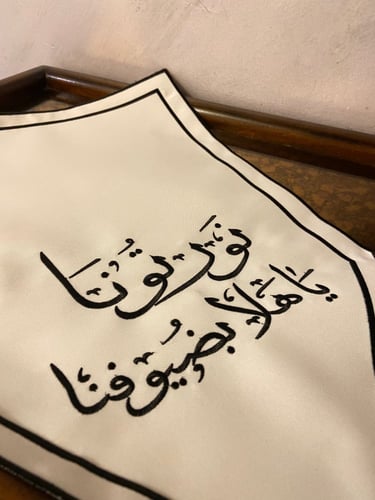 نورتونا
يا هلا بضيوفنا